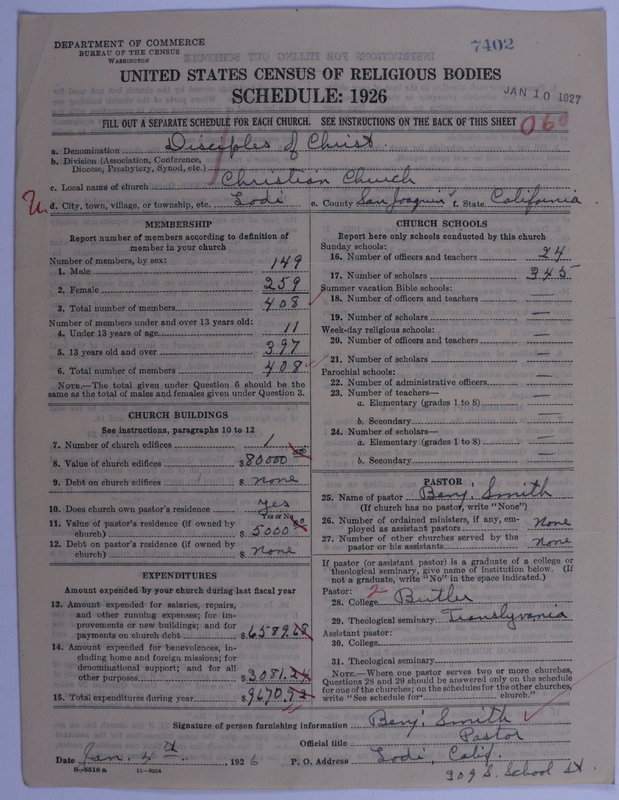 DEPARTMENT OF COMMERCE
BUREAU OF THE CENSUS
WASHINGTON
7402
UNITED STATES CENSUS OF RELIGIOUS BODIES
SCHEDULE: 1926
JAN 10 1927
FILL OUT A SEPARATE SCHEDULE FOR EACH CHURCH. SEE INSTRUCTIONS ON THE BACK OF THIS SHEET
060
a. Denomination Disciples of Christ.
b. Division (Association, Conference,
Diocese, Presbytery, Synod, etc.)
c. Local name of church Christian Church
U. d. City, town, village, or township, etc. Lodi e. County San Joaquin f. State California
MEMBERSHIP
Report number of members according to definition of
member in your church
Number of members, by sex:
1. Male 149
2. Female 259
3. Total number of members 408
Number of members under and over 13 years old:
4. Under 13 years of age 11
5. 13 years old and over 397
6. Total number of members 408
NOTE.—The total given under Question 6 should be the
same as the total of males and females given under Question 3.
CHURCH BUILDINGS
See instructions, paragraphs 10 to 12
7. Number of church edifices 1
8. Value of church edifices $ 80000 00
9. Debt on church edifices $ none
10. Does church own pastor's residence Yes
Yes or No
11. Value of pastor's residence (if owned by
church) $ 5000 00
12. Debt on pastor's residence (if owned by
church) $ none
EXPENDITURES
Amount expended by your church during last fiscal year
13. Amount expended for salaries, repairs,
and other running expenses; for im-
provements or new buildings; and for
payments on church debt $ 6589.68
14. Amount expended for benevolences, in-
cluding home and foreign missions; for
denominational support; and for all
other purposes $ 3081.24
15. Total expenditures during year $ 9670.92
CHURCH SCHOOLS
Report here only schools conducted by this church
Sunday schools:
16. Number of officers and teachers 24
17. Number of scholars 345
Summer vacation Bible schools:
18. Number of officers and teachers —
19. Number of scholars —
Week-day religious schools:
20. Number of officers and teachers —
21. Number of scholars —
Parochial schools:
22. Number of administrative officers —
23. Number of teachers—
a. Elementary (grades 1 to 8) —
b. Secondary —
24. Number of scholars—
a. Elementary (grades 1 to 8) —
b. Secondary —
PASTOR
25. Name of pastor Benj. Smith
(If church has no pastor, write "None")
26. Number of ordained ministers, if any, em-
ployed as assistant pastors None
27. Number of other churches served by the
pastor or his assistants none
If pastor (or assistant pastor) is a graduate of a college or
theological seminary, give name of institution below. (If
not a graduate, write "No" in the space indicated.)
Pastor: 2
28. College Butler
29. Theological seminary Translyvania
Assistant pastor:
30. College
31. Theological seminary
NOTE.—Where one pastor serves two or more churches,
Questions 28 and 29 should be answered only on the schedule
for one of the churches; on the schedules for the other churches,
write "See schedule for church."
Signature of person furnishing information Benj. Smith
Official title Pastor
Date Jan. 4th. 1926 P. O. Address Lodi, Calif.
309 S. School St.
6-5518 a 11-9064